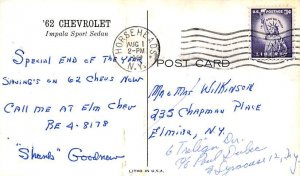 '62 CHEVROLET
Impala Sport Sedan
HORSEHEADS
AUG 1
2-PM
N.Y.
U.S. POSTAGE
LIBERTY
POST CARD
Special End of the Year
Savings on 62 Chevs Now
Call me at Elm Chev
Re 4-8178
"Shanks" Goodnew
Mr & Mrs Wilkinson
235 Chapman Place
Elmira, N.Y.
6
Dr.
% Paul
Syracuse 12, N.Y.
LITHO. IN U.S.A.